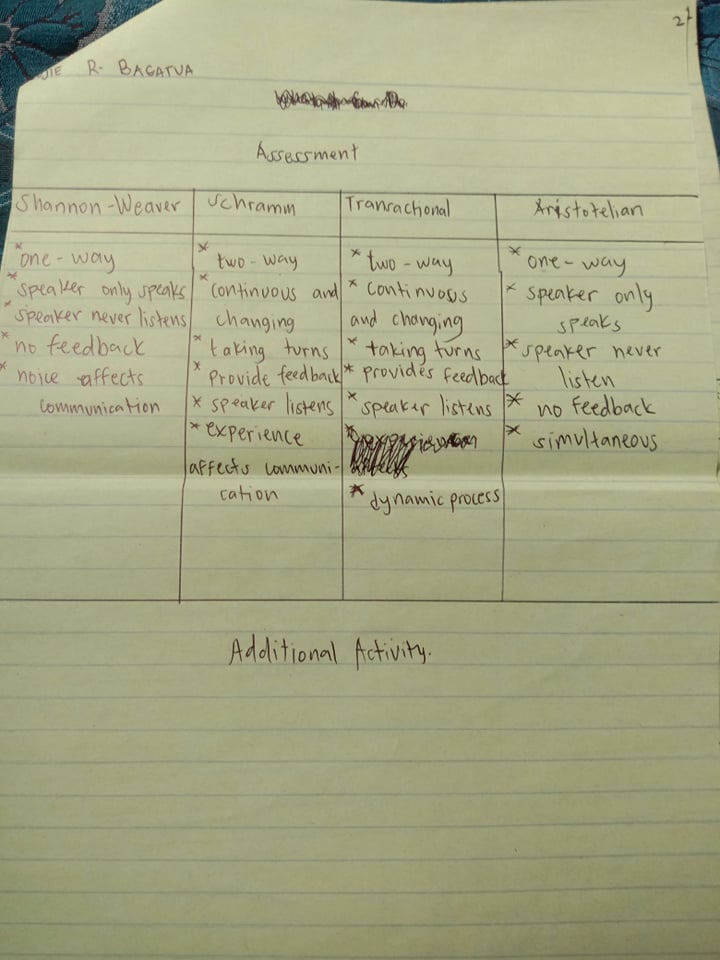 R. BAGATUA
Assessment
Shannon-Weaver
*one-way
*speaker only speaks
*speaker never listens
*no feedback
*noice affects
communication
Schramm
*two-way
*continuous and
changing
*taking turns
*Provide feedback
*speaker listens
*experience
affects communi-
cation
Transactional
*two-way
*continuous
and changing
*taking turns
*provides feedback
*speaker listens
*dynamic process
Aristotelian
*one-way
*speaker only
speaks
*speaker never
listen
*no feedback
*simultaneous
Additional Activity.